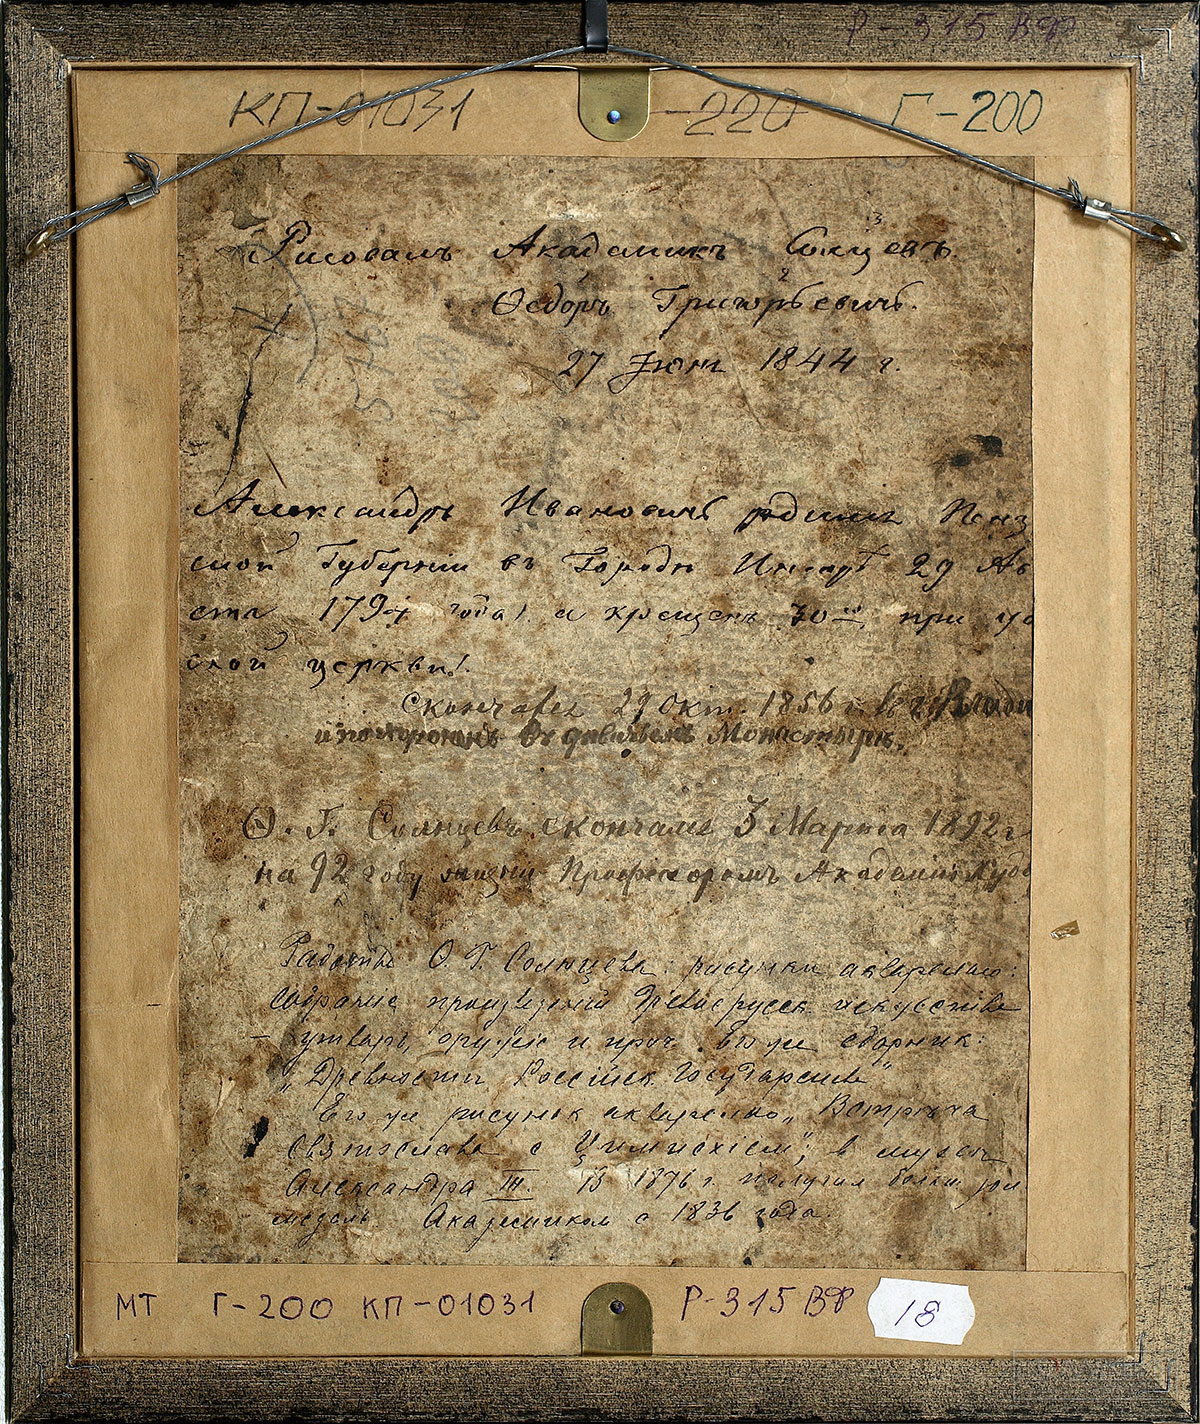 Р-315 ВФ
КП-01031 220 Г-200
Рисовалъ Академикъ Солнцевъ.
Ѳедоръ Григорьевичъ.
27 Іюня 1844 г.
Александръ Ивановичъ родился Пенз
ской Губерніи въ Городѣ Инсарѣ 29 Ав
ста 1794 года, а крещенъ 30го при
ской церкви.
Скончался 29 Окт. 1856 г. въ г. Влади
и похороненъ въ дѣвичьемъ Монастырѣ.
Ѳ. Г. Солнцевъ скончался 3 Марта 1892 г
на 92 году жизни Профессоромъ Академіи Худо
Работы Ѳ. Г. Солнцева: рисунки акварелью:
Собраніе произведеній Древнерусск искусства
– утварь, оружіе и проч. его же сборник:
"Древности Россійск. Государства"
Его же рисунок акварелью "Встрѣча
Святослава с Цимисхіем", в музеѣ
Александра III. В 1876 г. получил больш. зол
медаль. Академиком с 1836 года.
МТ Г-200 КП-01031 Р-315 ВФ 18